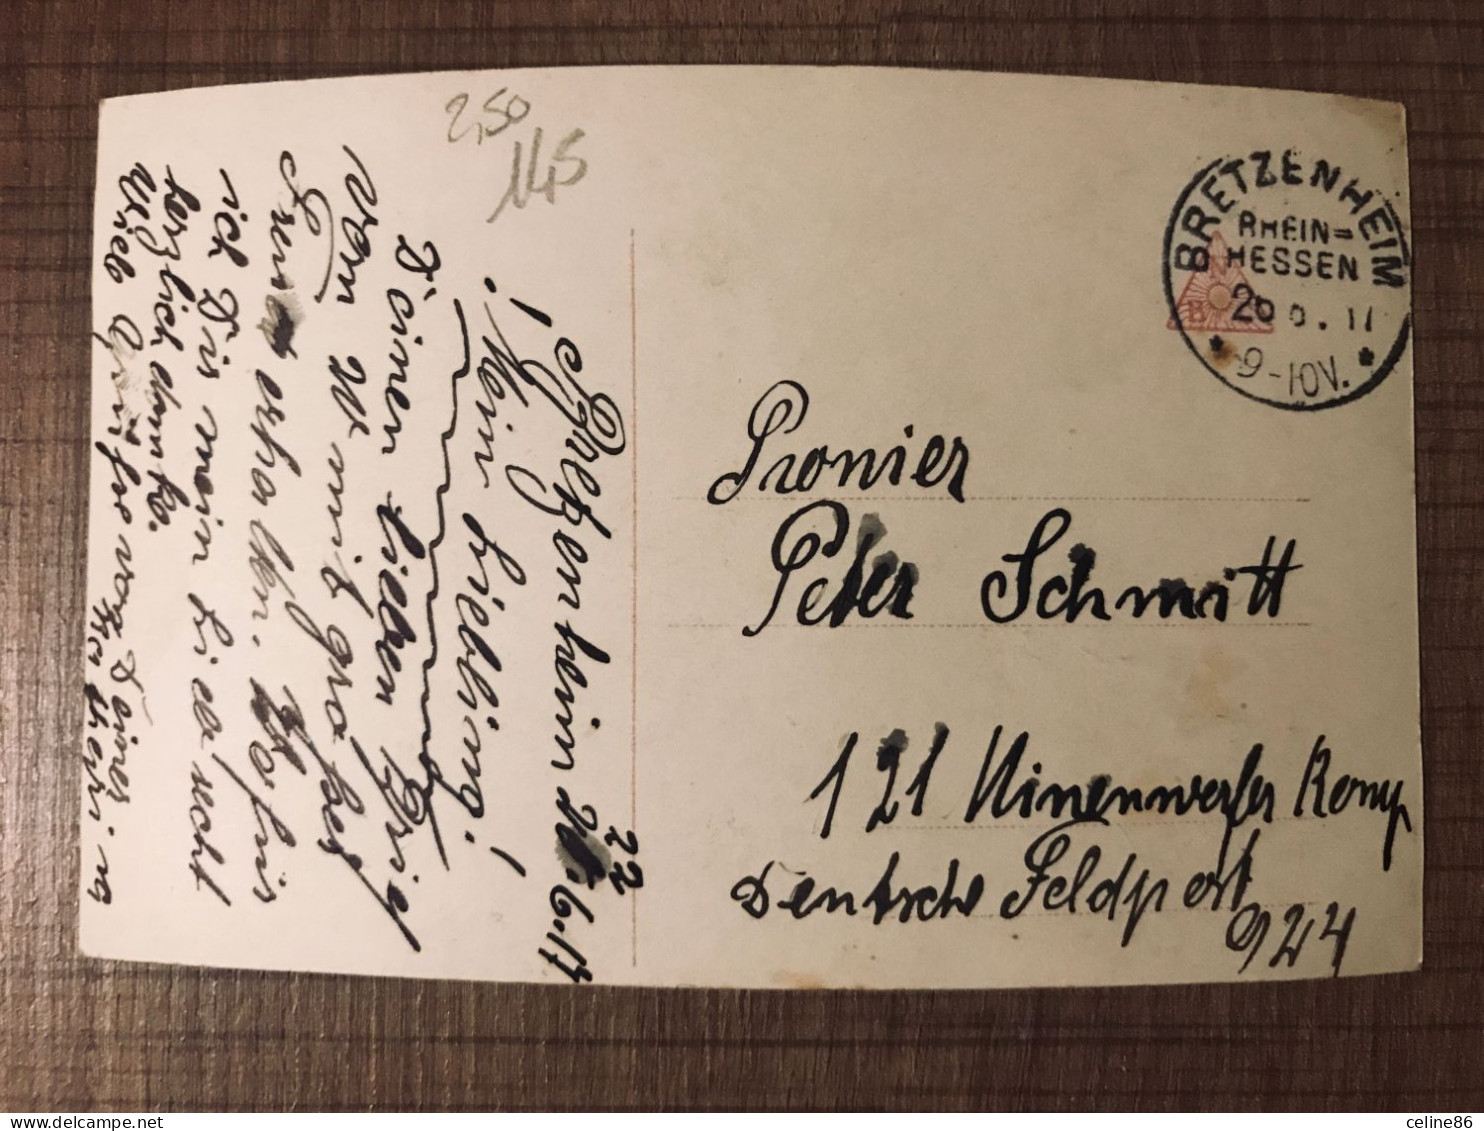 2,50
145
BRETZENHEIM
RHEIN=
HESSEN
26 6. 17
* 9-10V. *
NBH
Pionier
Peter Schmitt
121 Minenwerfer Komp
Deutsche Feldpost
924
Bretzenheim 22 6. 17
! Mein Liebling! !
Deinen lieben Brief
vom 20 mit großer
Freude erhalten. Wofür
ich Dir mein Lieb recht
herzlich danke.
Viele Grüße von Deiner
celine86